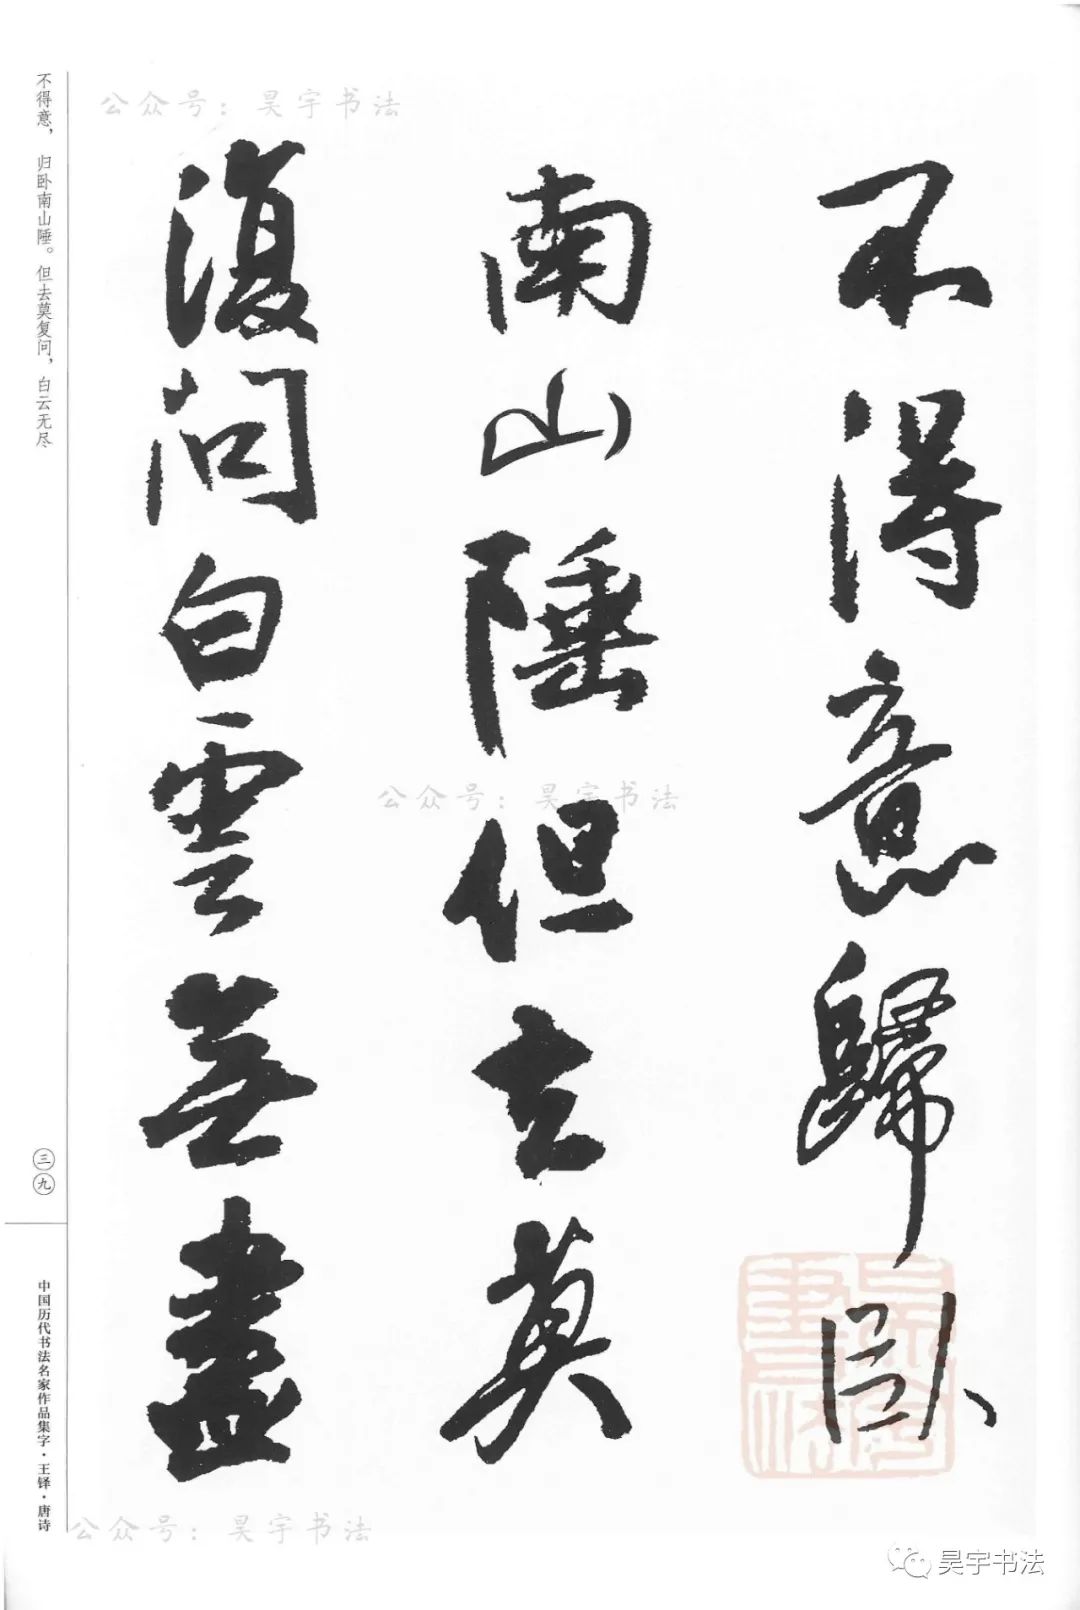 公众号：昊宇书法
不得意歸卧
南山陲但去莫
復問白雲無盡
不得意，归卧南山陲。但去莫复问，白云无尽
公众号：昊宇书法
三九
中国历代书法名家作品集字·王铎·唐诗
公众号：昊宇书法
昊宇书法